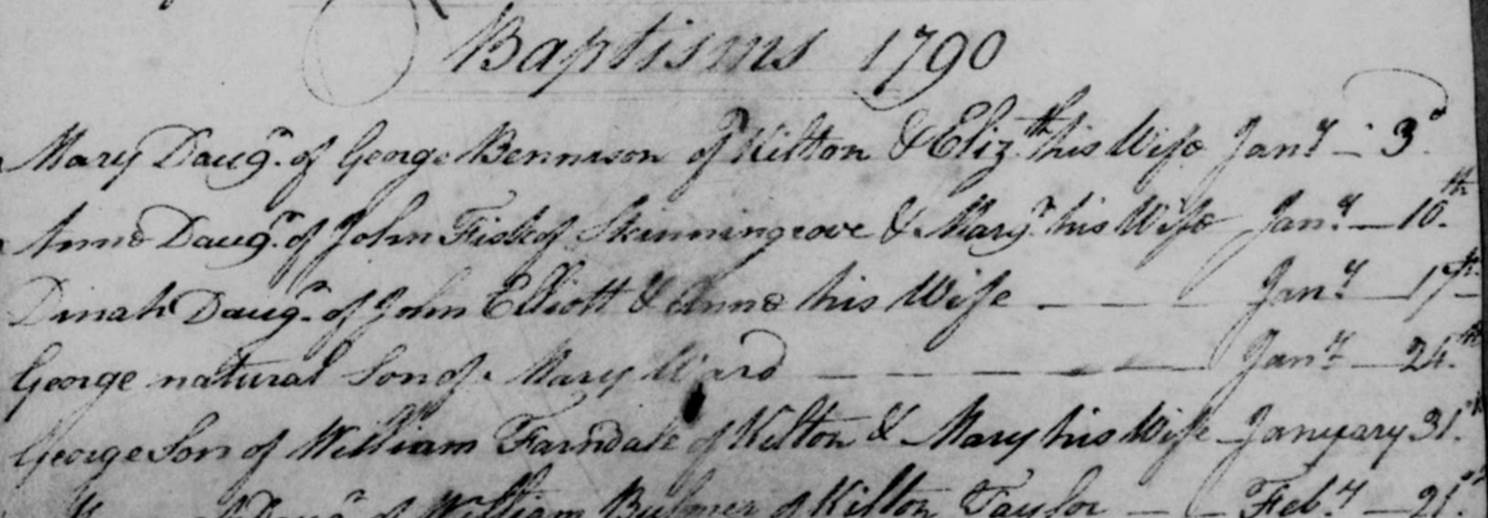 Baptisms 1790
Mary Daugr. of George Bennison of Kilton & Elizth. his Wife Jany. - 3d.
Anne Daugr. of John Fisk of Skinningrove & Margt. his Wife Jany. - 10th.
Dinah Daugr. of John Elliott & Anne his Wife - - - Jany. - 17th.
George natural Son of Mary Ward - - - - - Jany. - 24th.
George Son of William Farndale of Kilton & Mary his Wife January 31st.
Daugr. of William Bulmer of Kilton Taylor - - Feby. - 21st.